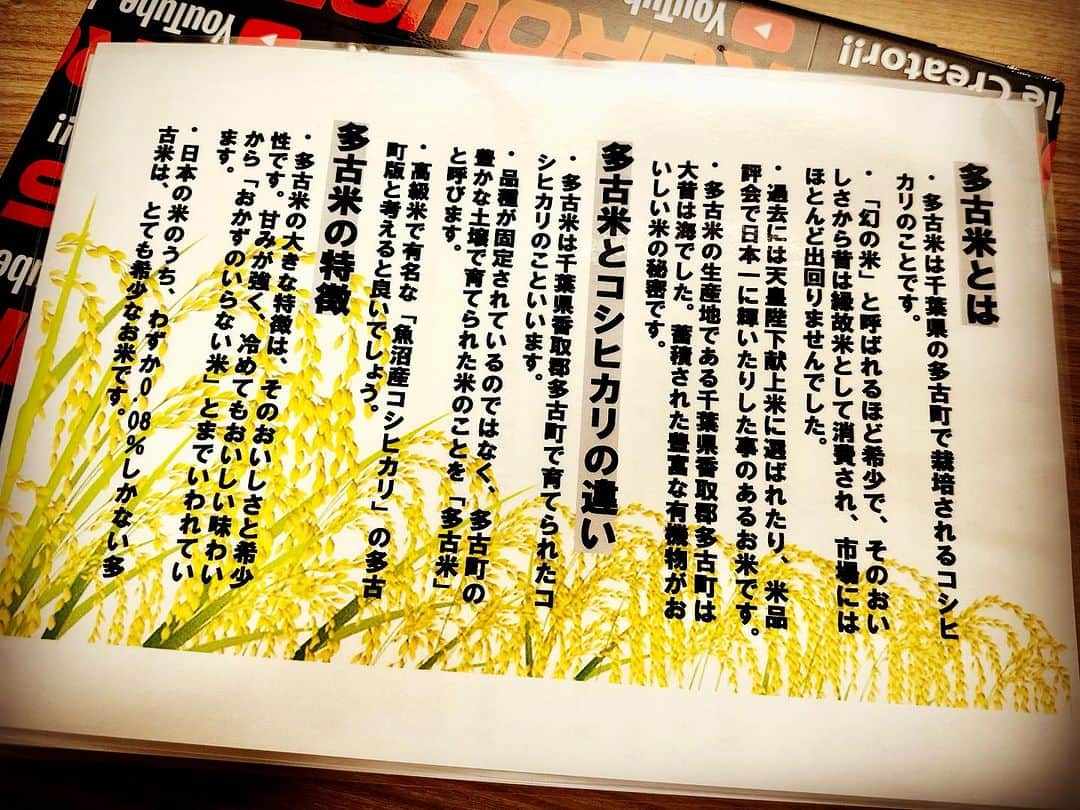 多古米とは
・多古米は千葉県の多古町で栽培されるコシヒ
カリのことです。
・「幻の米」と呼ばれるほど希少で、そのおい
しさから昔は縁故米として消費され、市場には
ほとんど出回りませんでした。
・過去には天皇陛下献上米に選ばれたり、米品
評会で日本一に輝いたりした事のあるお米です。
・多古米の生産地である千葉県香取郡多古町は
大昔は海でした。蓄積された豊富な有機物がお
いしい米の秘密です。
多古米とコシヒカリの違い
・多古米は千葉県香取郡多古町で育てられたコ
シヒカリのことといいます。
・品種が固定されているのではなく、多古町の
豊かな土壌で育てられた米のことを「多古米」
と呼びます。
・高級米で有名な「魚沼産コシヒカリ」の多古
町版と考えると良いでしょう。
多古米の特徴
・多古米の大きな特徴は、そのおいしさと希少
性です。甘みが強く、冷めてもおいしい味わい
から「おかずのいらない米」とまでいわれてい
ます。
・日本の米のうち、わずか0.08%しかない多
古米は、とても希少なお米です。
le Creator!!
YouTube
YouTube
!!
Tube